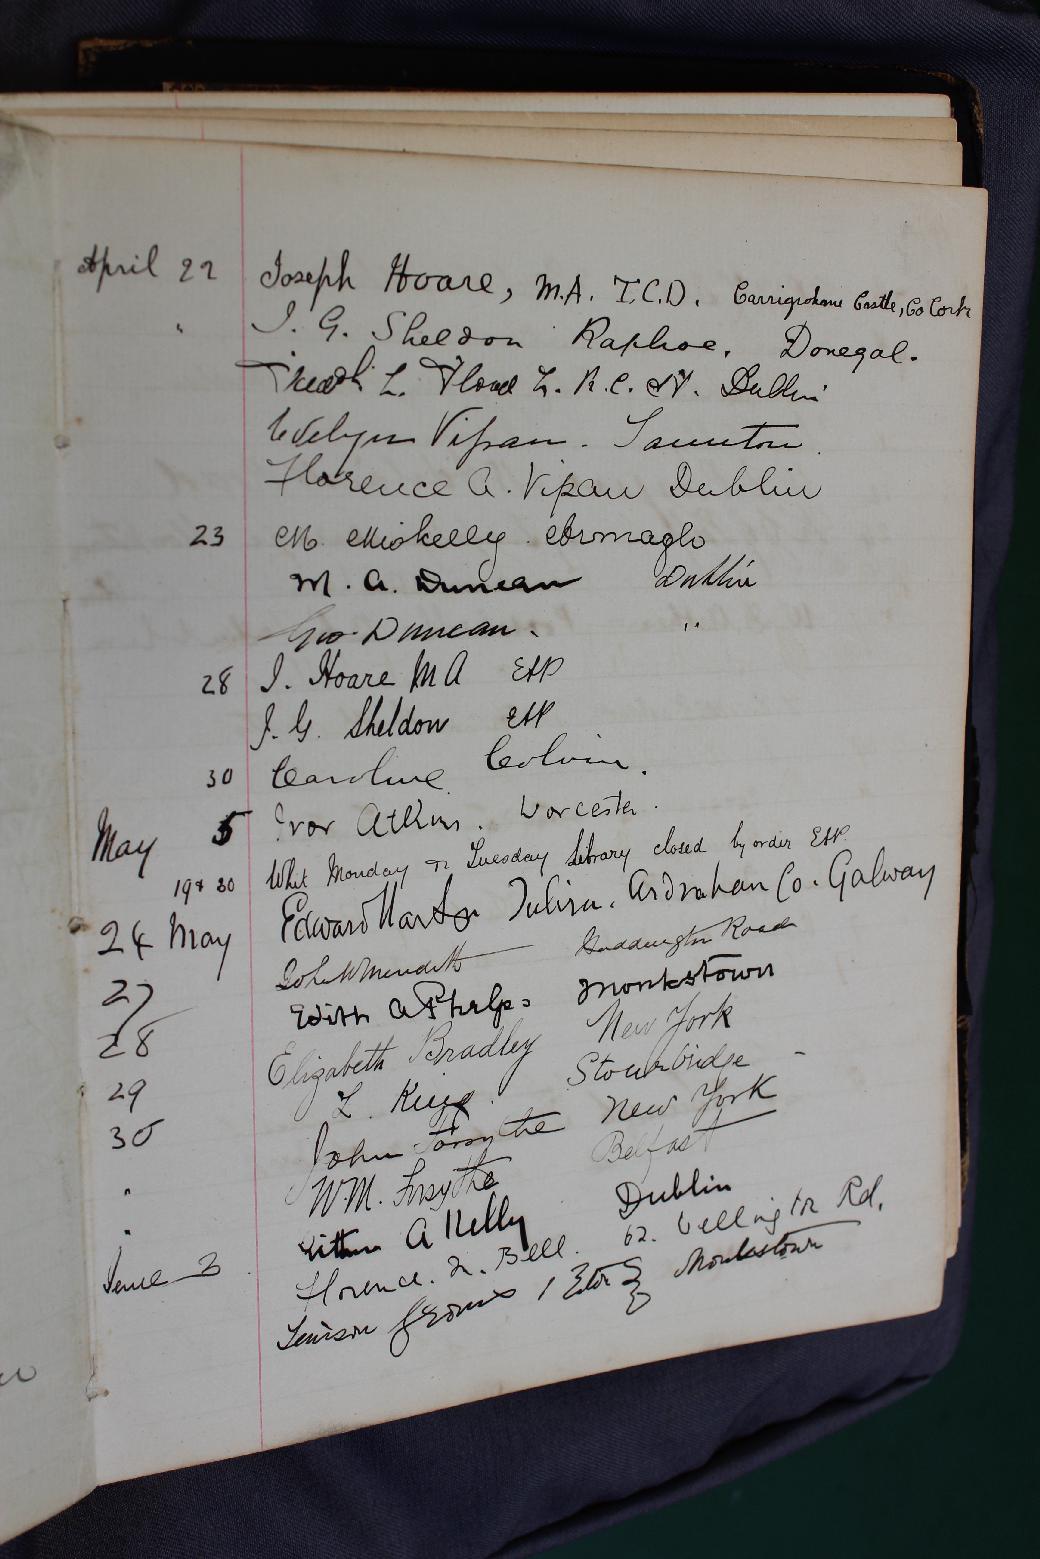 April 22 Joseph Hoare, M.A. T.C.D. Carrigrohane Castle, Co Cork
" J. G. Sheldon Raphoe, Donegal.
L. Dublin
Evelyn Vipan. Taunton.
Florence A. Vipan Dublin
23 M. McSkelly Armagh
M. A. Duncan Dublin
Geo. Duncan. "
28 J. Hoare MA
J. G. Sheldon
30 Caroline Colvin.
May 5 Ivor Atkins. Worcester.
19 & 20 Whit Monday & Tuesday Library closed by order
24 May Edward Martyn Tulira. Ardrahan Co. Galway
27 Meredith Haddington Road
28 Edith A Phelps Monkstown
29 Elizabeth Bradley New York
30 L. King Stourbridge
" John Forsythe New York
" W.M. Forsythe Belfast
A Kelly Dublin
June 3 Florence. N. Bell. 62. Wellington Rd.
Monkstown